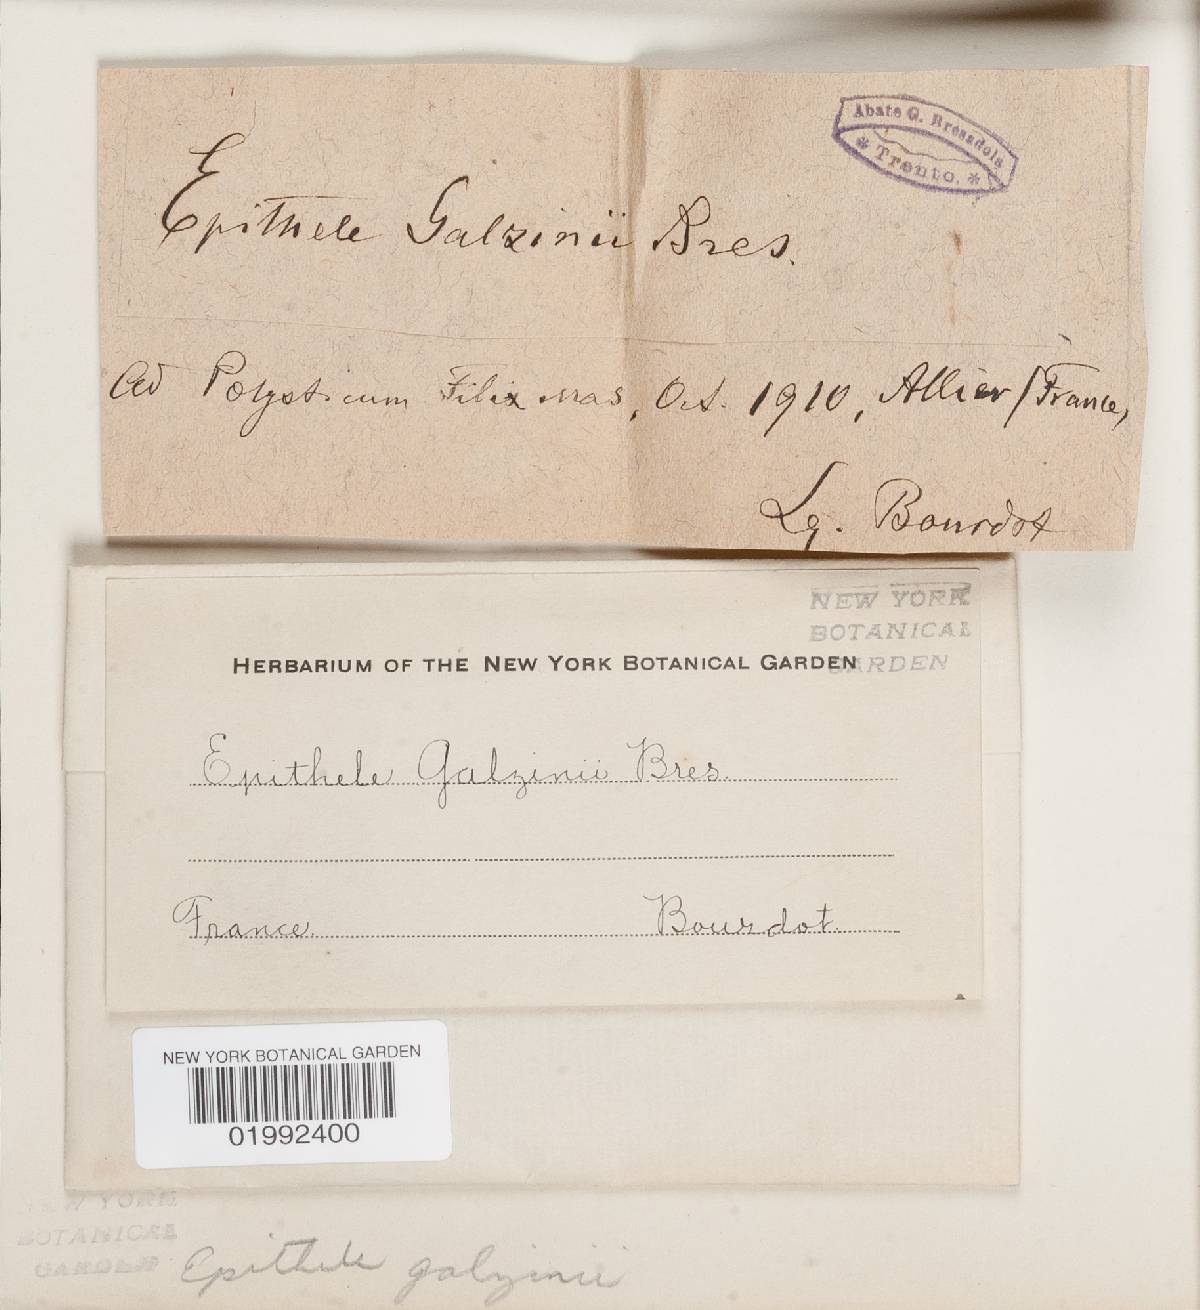 Abate G. Bresadola
* Trento. *
Epithele Galzinii Bres.
Ad Polysticum Filix mas, Oct. 1910, Allier/France,
Lg. Bourdot
NEW YORK
BOTANICAL
GARDEN
HERBARIUM OF THE NEW YORK BOTANICAL GARDEN
Epithele Galzinii Bres.
France. Bourdot.
NEW YORK BOTANICAL GARDEN
01992400
NEW YORK
BOTANICAL
GARDEN
Epithele galzinii